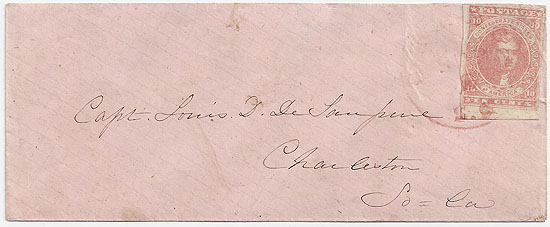 POSTAGE
10 10
CONFEDERATE STATES
OF AMERICA
10 10
TEN CENTS
Capt. Louis D. De Saussure
Charleston
So = Ca